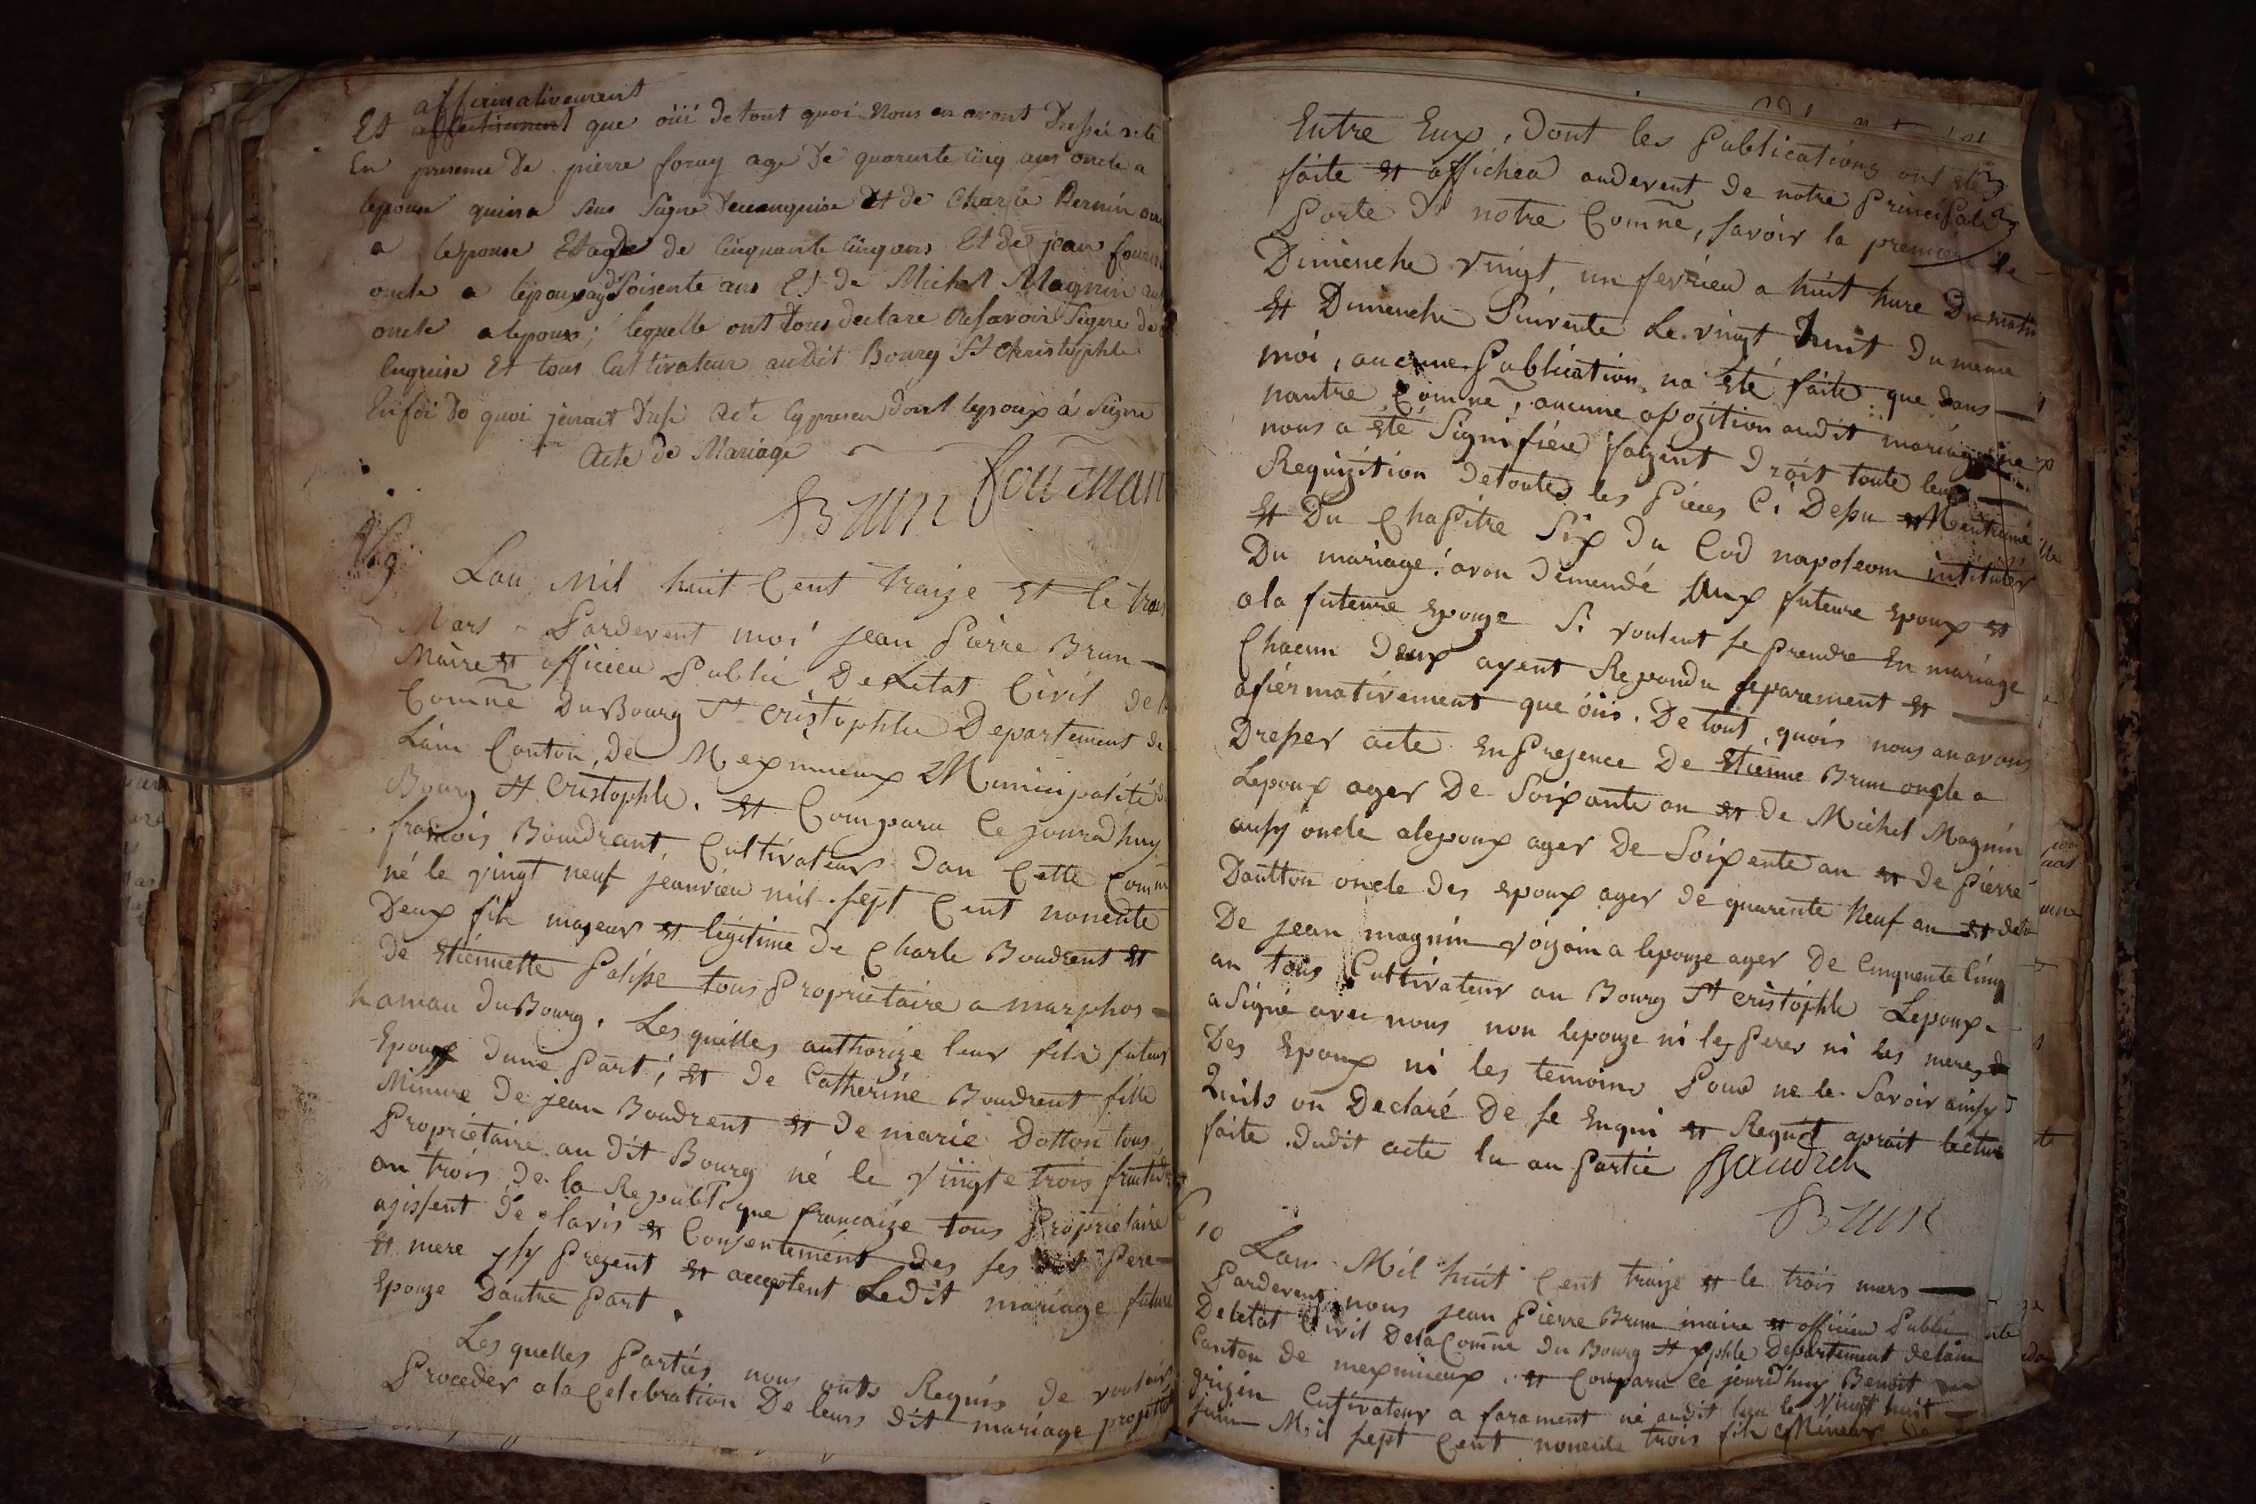 affirmativement
Et affectivement que öüi de tout quoi Nous en avont Dressé acte
En presence De pierre foray age De quarante cinq ans oncle a
lepouse quina seus Signe Deceenquise Et de Charle Bernin
a lepouse Et age de cinquante cinq ans Et de jean
oncle a lepoux agé Soisente ans Et de Michel Magnin
oncle a lepoux; lequelle ont tous declare ne savoir Signe de
enquise Et tous Cultivateur audit Bourg St christophle
Enfoi de quoi javait Dresé acte cy presen dont lepoux á Signé
acte de Mariage
Brun fournan
9 Lan Mil huit Cent traize et le trois
Mars - Pardevent moi jean Pierre Brun
Maire et officieu Public De Letat Civil de la
Comñe Du Bourg St cristophle Departement de
Lain Canton, De Meximieux Municipalité de
Bourg St Cristophle. et Comparu Ce jouradhuy
francois Boudrant, Cultivateur Dan Cette Comñe
né le vingt neuf jeanvieu mil sept Cent nonente
Deux fils majeur et légitime de Charle Boudrent et
de etiennette Palisse tous Proprietaire a marphos
hamau Du Bourg. Lesquelles authorize leur fils futeur
Epoux Dune Part; et de Catherine Boudrent fille
Mineure De jean Boudrent et De marie Dotton tous
Propriétaire au Dit Bourg né le vingte trois fructidor
an trois de la Republique francaize tous Proprietaire
agissent De lavis et Consentement Des ses dit Pere
et mere ysy Present et acceptent Ledit mariage future
Epouze Dautre Part.
Les quelles Parties nous onts Requis de vouloir
Proceder a la Celebration De leurs dit mariage projetté
Entre Eux, Dont les Publications ont eté
faite et affichea audevent de notre Principale
Porte De notre Comñe, savoir la premiere le
Dimenche vingt un fevrieu a huit hure Du matin
et Dimenche Suivente Le vingt huit du meme
moi, aucune Publication na eté faite que dans
nautre Comñe, aucune opozition audit mariage ne
nous a eté Signifiéé faizent droit toute leur
Requizition Detoutes les Piéces Ci Desu Mentionné
et Du Chapitre Six Du Cod napoleom intituler
Du mariage: avon demendé Aux futeure epoux et
a la futeure epouze Si voulent se Prendre En mariage
Chacun Deux ayent Repondu separement et
afiérmativement que öüis. De tout, quois nous an avons
Dresser acte En Presence De etienne Brun oncle a
Lepoux ager De Soixante an et de Michel Magnin
aussy oncle alepoux ager De Soixente an et De Pierre
Dautton oncle Des epoux ager de quarente Neuf an et
De jean magnin voizoin a lepouze ager De Cinquente Cinq
an tous Cultivateur au Bourg St cristophle Lepoux
a Signé avec nous non lepouze ni les Peres ni les meres
Des epoux ni les temoins Pour ne le Savoir ainsy
Quils on Declaré De se enqui et Requit aprait lecture
faite Dudit acte lu au Partie Baudren
Brun
10 Lan Mil huit Cent traize et le trois mars
Pardevent nous jean Pierre Brun maire et officieu Public
De létat Civil De la Comñe Du Bourg St xphle Departement delain
Canton De meximieux. et Comparu Ce jourdhuy Benoit
grizin Cultivateur a faramant né audit lieu le Vingt huit
juin Mil sept Cent nonente trois fils Mineur De